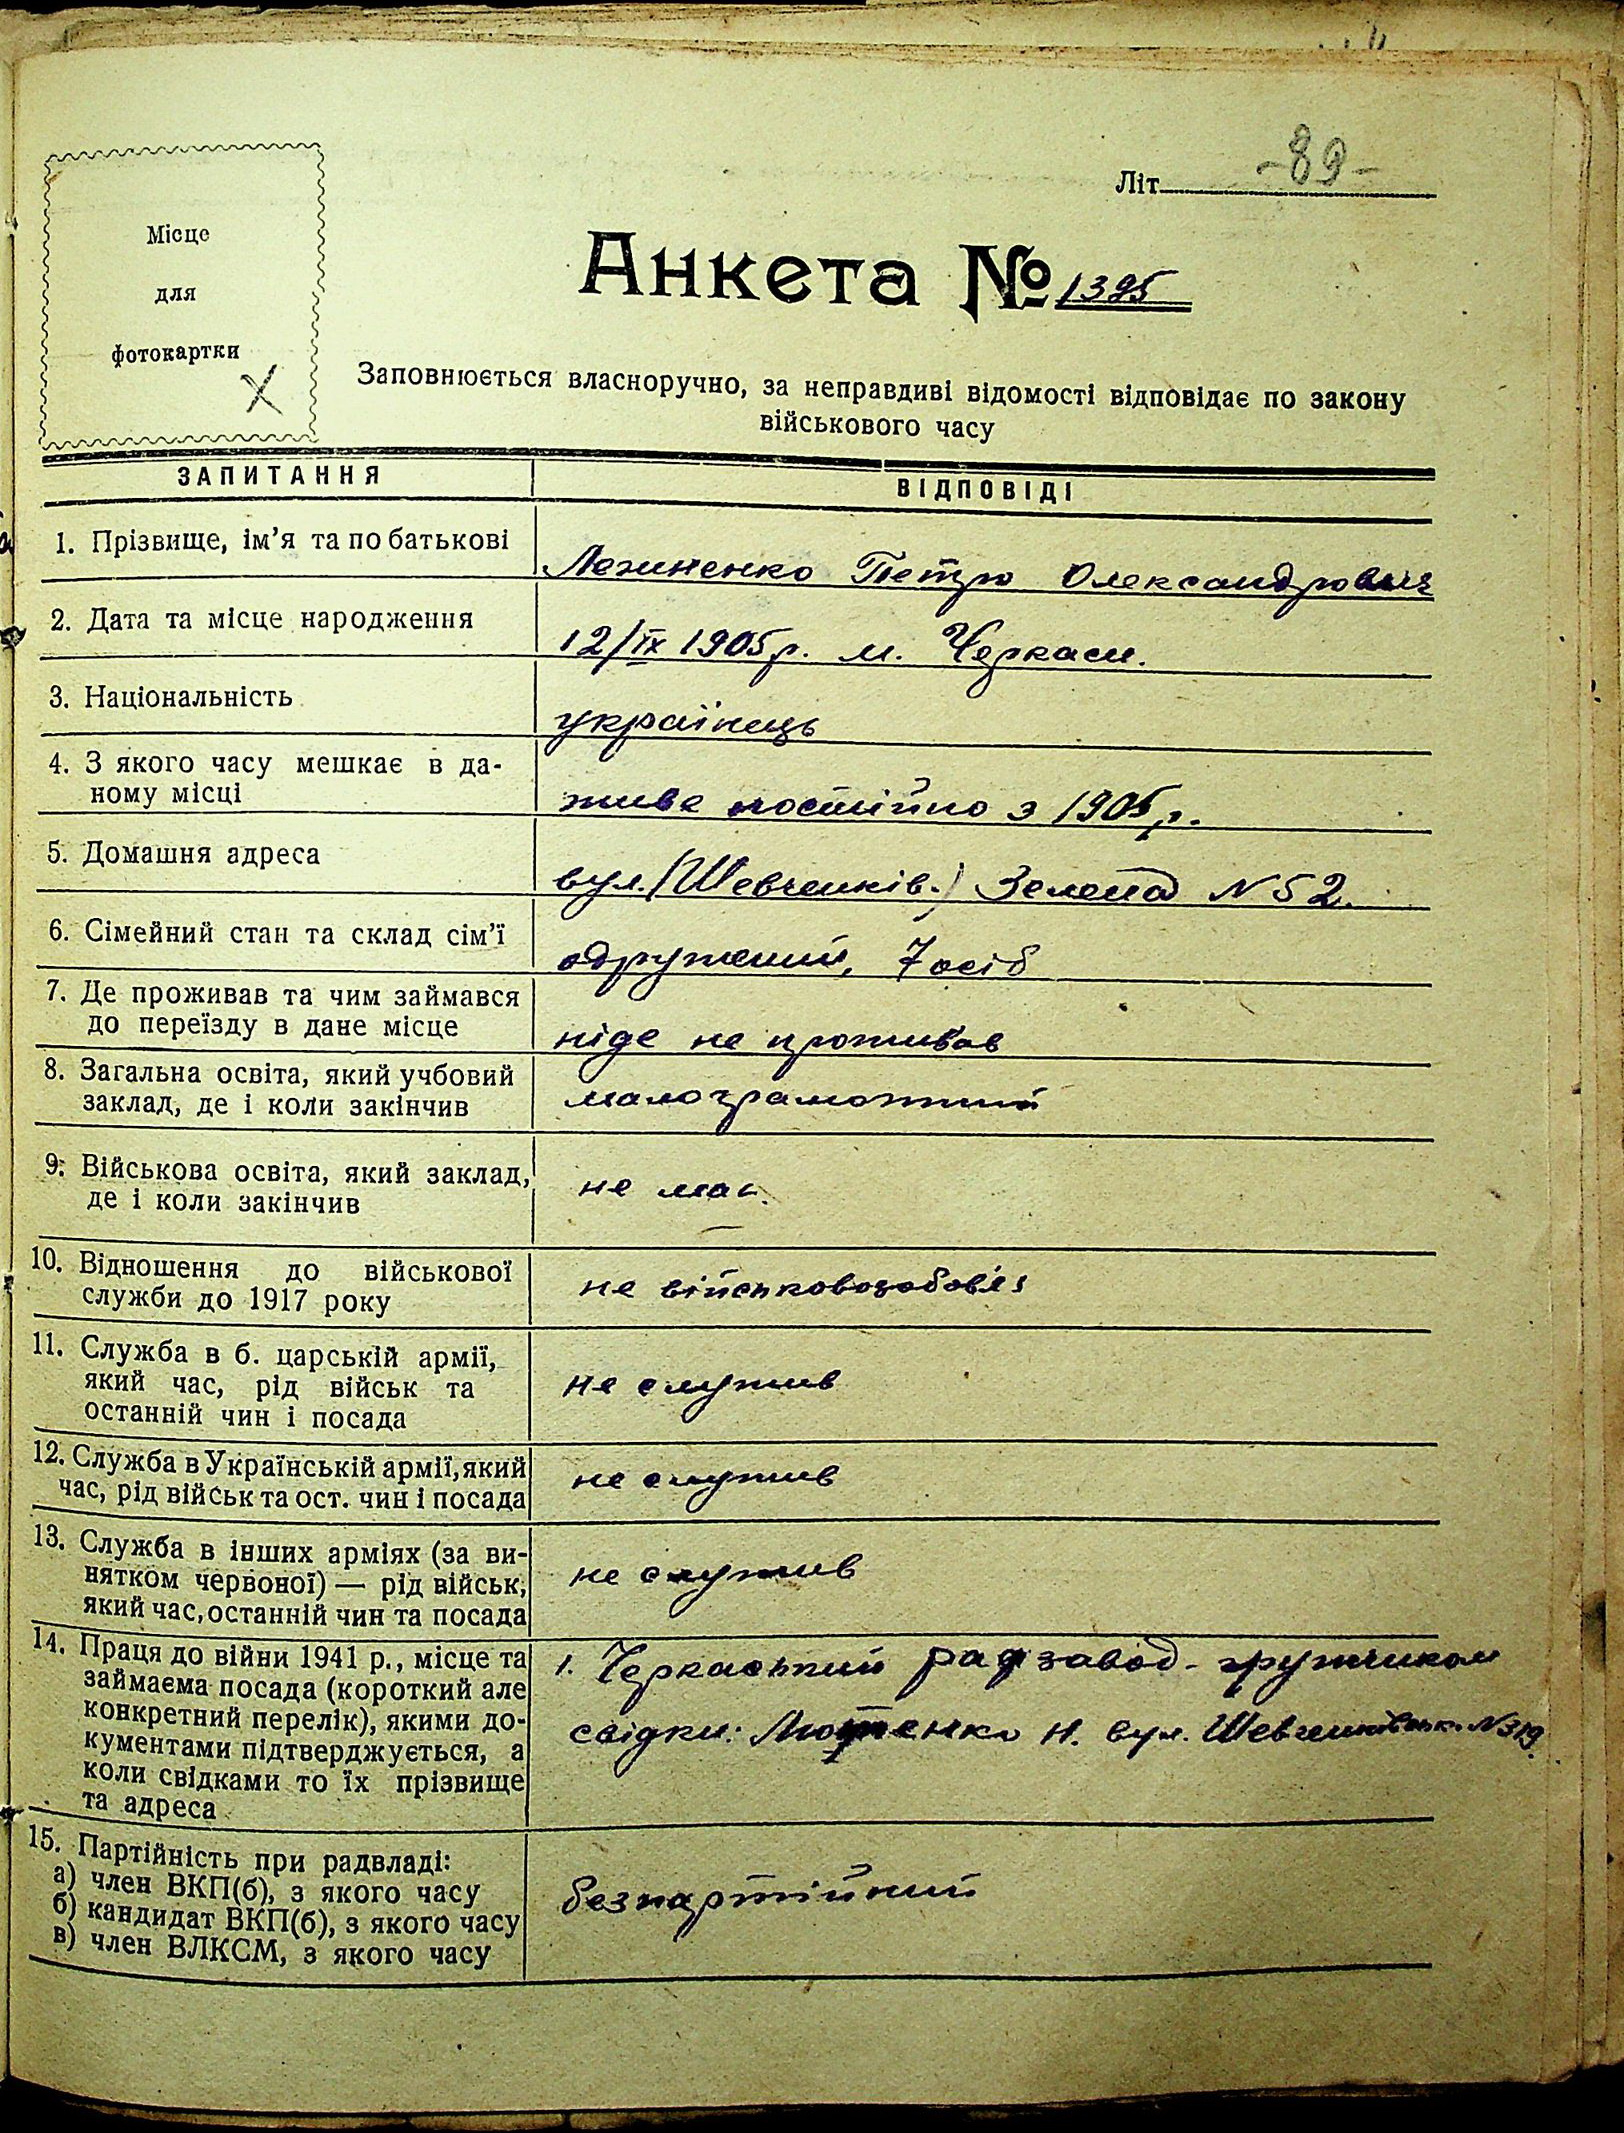 Літ. -89-
Місце
для
фотокартки
Анкета № 1395
Заповнюється власноручно, за неправдиві відомості відповідає по закону
військового часу
ЗАПИТАННЯ
ВІДПОВІДІ
1. Прізвище, ім'я та по батькові
Петро Олександрович
2. Дата та місце народження
12/IX 1905 р. м. Черкаси.
3. Національність
українець
4. З якого часу мешкає в да-
ному місці
живе постійно з 1905 р.
5. Домашня адреса
вул. (Шевченків.) Зелена N 52.
6. Сімейний стан та склад сім'ї
одружений, 7 осіб
7. Де проживав та чим займався
до переїзду в дане місце
ніде не проживав
8. Загальна освіта, який учбовий
заклад, де і коли закінчив
малограмотний
9. Військова освіта, який заклад,
де і коли закінчив
не має.
10. Відношення до військової
служби до 1917 року
не військовозобов'яз
11. Служба в б. царській армії,
який час, рід військ та
останній чин і посада
не служив
12. Служба в Українській армії, який
час, рід військ та ост. чин і посада
не служив
13. Служба в інших арміях (за ви-
нятком червоної) — рід військ,
який час, останній чин та посада
не служив
14. Праця до війни 1941 р., місце та
займаєма посада (короткий але
конкретний перелік), якими до-
кументами підтверджується, а
коли свідками то їх прізвище
та адреса
1. Черкаський завод - грузчиком
свідки: Н. вул. Шевченківськ. N 319.
15. Партійність при радвладі:
а) член ВКП(б), з якого часу
б) кандидат ВКП(б), з якого часу
в) член ВЛКСМ, з якого часу
безпартійний